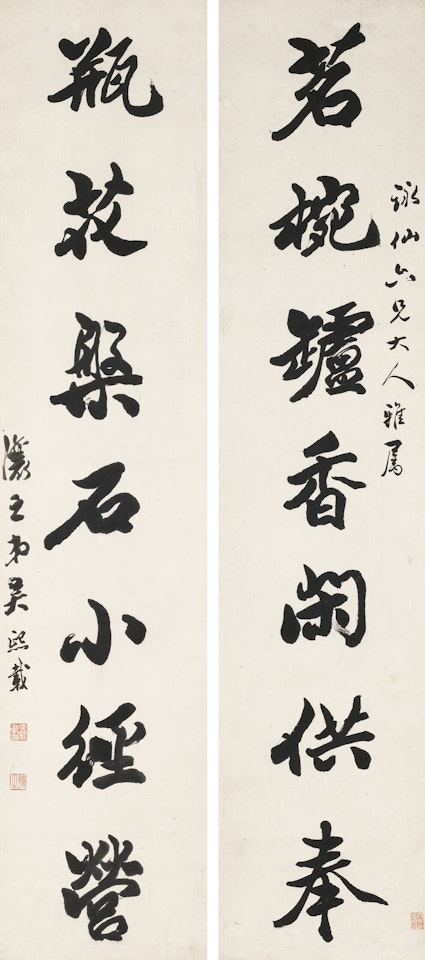 詠仙六兄大人雅屬
茗椀罏香閑供奉
瓶花槃石小經營
讓之弟吳熙載